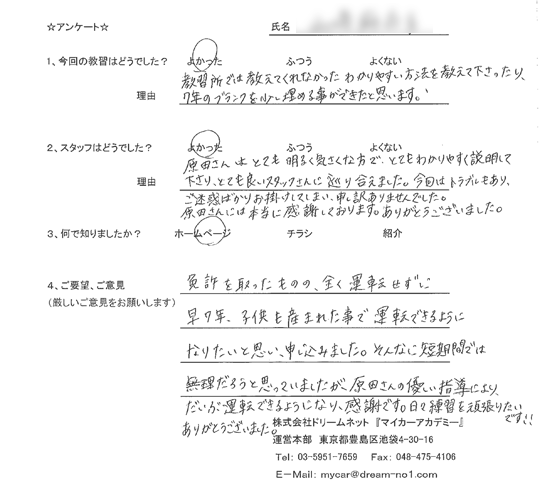 ☆アンケート☆
氏名
1、今回の教習はどうでした？ よかった ふつう よくない
教習所では教えてくれなかったわかりやすい方法を教えて下さったり、
理由 7年のブランクを少し埋める事ができたと思います。
2、スタッフはどうでした？ よかった ふつう よくない
原田さんはとても明るく気さくな方で、とてもわかりやすく説明して
理由 下さり、とても良いスタッフさんに巡り合えました。今回はトラブルもあり、
ご迷惑ばかりお掛けしてしまい、申し訳ありませんでした。
原田さんには本当に感謝しております。ありがとうございました。
3、何で知りましたか？ ホームページ チラシ 紹介
4、ご要望、ご意見 免許を取ったものの、全く運転せずに
（厳しいご意見をお願いします）
早7年、子供も産まれた事で運転できるように
なりたいと思い、申し込みました。そんなに短期間では
無理だろうと思っていましたが、原田さんの優しい指導により、
だいぶ運転できるようになり、感謝です。日々練習を頑張りたい
です!!
ありがとうございました。
株式会社ドリームネット 『マイカーアカデミー』
運営本部 東京都豊島区池袋4-30-16
Tel: 03-5951-7659 Fax: 048-475-4106
E－Mail: mycar@dream-no1.com